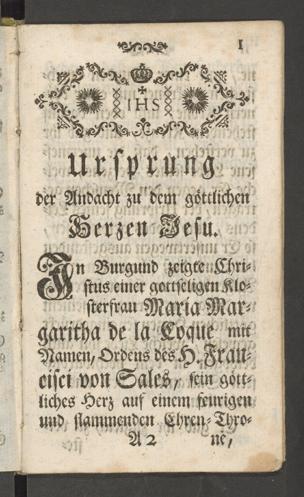 1
IHS
Ursprung
der Andacht zu dem göttlichen
Herzen Jesu.
In Burgund zeigte Chri-
stus einer gottseligen Klo-
sterfrau Maria Mar-
garitha de la Coque mit
Namen, Ordens des H. Fran-
cisci von Sales, sein gött-
liches Herz auf einem feurigen
und flammenden Ehren-Thro-
A 2 ne,